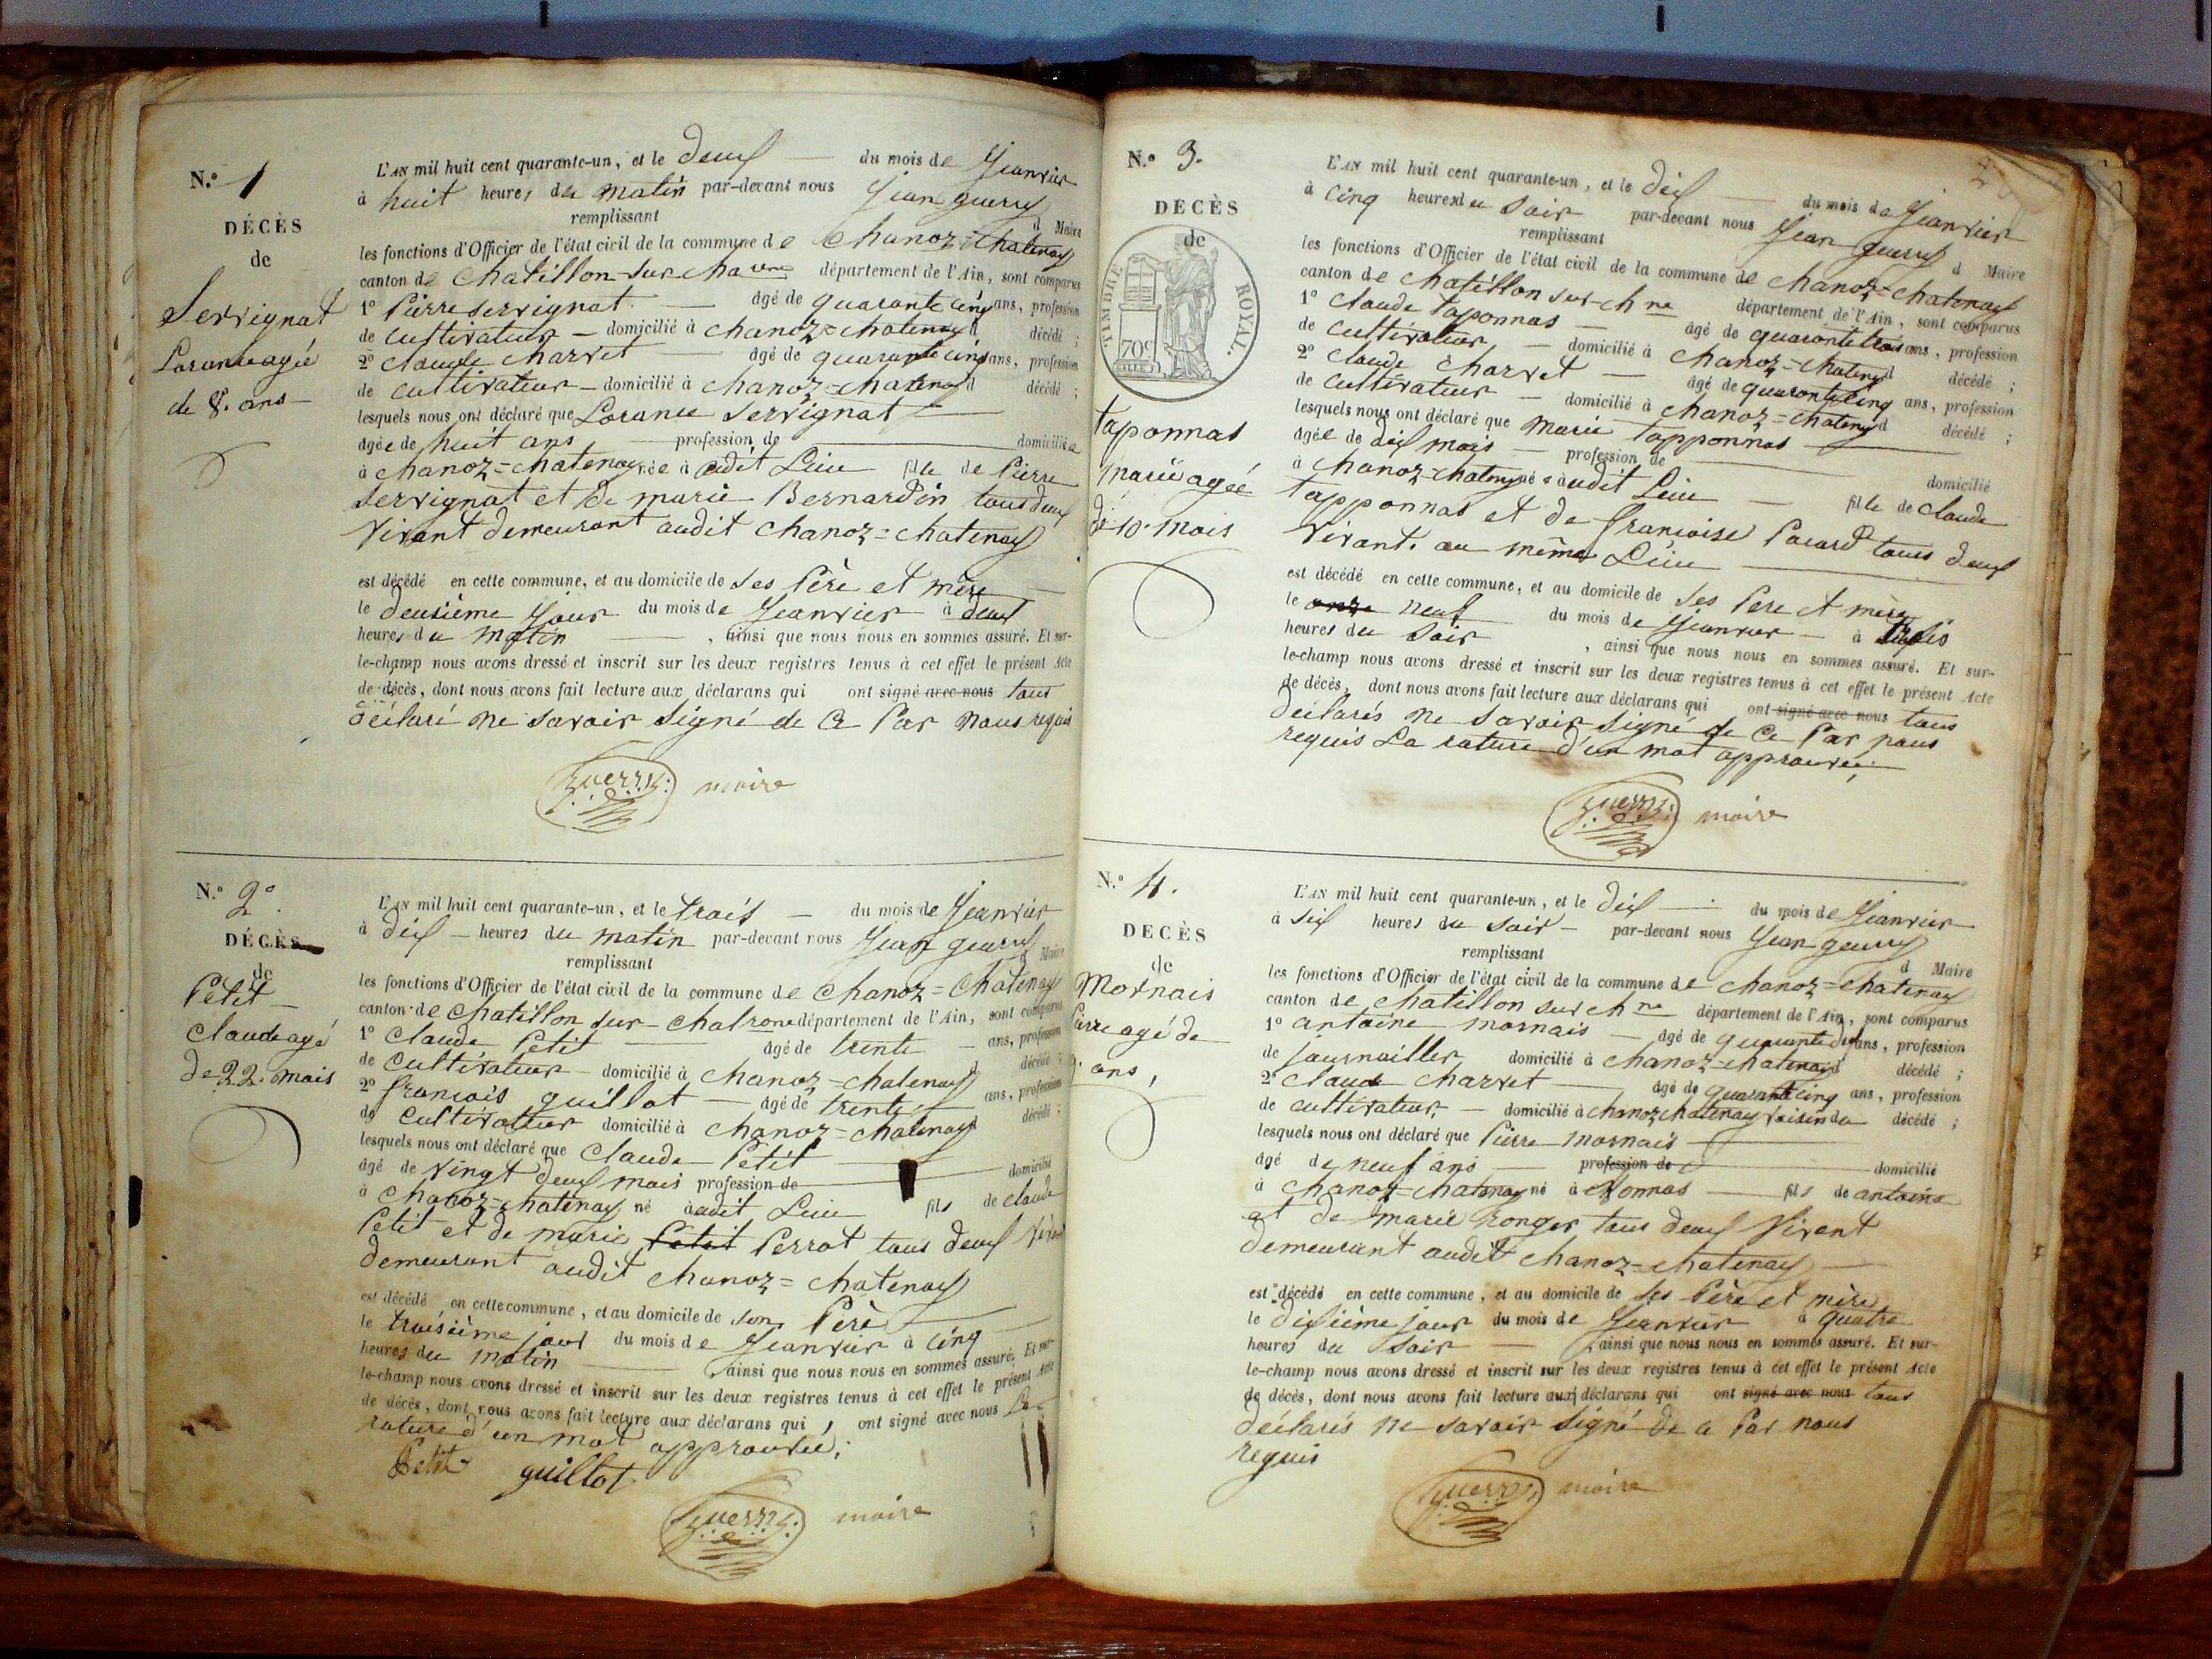 N.° 1
DÉCÈS
de
Servignat
Loranue agée
de 8. ans
L'AN mil huit cent quarante-un, et le deux du mois de Jeanvier
à huit heures du matin par-devant nous Jean guerry
remplissant d Maire
les fonctions d'Officier de l'état civil de la commune de Chanoz=chatenay
canton de chatillon-sur-cha département de l'Ain, sont comparus
1° Pierre Servignat âgé de quarante cinq ans, profession
de cultivateur domicilié à chanoz=chatenay d décédé ;
2° claude charvet âgé de quarante cinq ans, profession
de cultivateur domicilié à chanoz=chatenay d décédé ;
lesquels nous ont déclaré que Loranue Servignat
âgée de huit ans profession de domiciliée
à chanoz=chatenay née à audit Lieu fille de Pierre
Servignat et de marie Bernardin tous deux
vivant demeurant audit chanoz=chatenay
est décédé en cette commune, et au domicile de ses Père et mère
le deusième jour du mois de Jeanvier à deux
heures du matin , ainsi que nous nous en sommes assuré. Et sur-
le-champ nous avons dressé et inscrit sur les deux registres tenus à cet effet le présent Acte
de décès, dont nous avons fait lecture aux déclarans qui ont signé avec nous tous
déclaré ne savoir signé de ce Par nous requis
guerry maire
N.° 2°
DÉCÈS
de
Petit
claude agé
de 22. mois
L'AN mil huit cent quarante-un, et le trois du mois de Jeanvier
à dix heures du matin par-devant nous Jean guerry
remplissant Maire
les fonctions d'Officier de l'état civil de la commune de Chanoz=Chatenay
canton de Chatillon sur-Chalrone département de l'Ain, sont comparus
1° Claude Petit âgé de trente ans, profession
de Cultivateur domicilié à Chanoz=chatenay décédé ;
2° francois guillot âgé de trente ans, profession
de Cultivateur domicilié à chanoz=chatenay d décédé ;
lesquels nous ont déclaré que Claude Petit
âgé de vingt deux mois profession de domicilié
à chanoz=chatenay né audit Lieu fils de claude
Petit et de marie Petit Perrot tous deux vivant
demeurant audit chanoz=chatenay
est décédé en cette commune, et au domicile de son Père
le troisième jour du mois de Jeanvier à cinq
heures du matin ainsi que nous nous en sommes assuré. Et sur-
le-champ nous avons dressé et inscrit sur les deux registres tenus à cet effet le présent Acte
de décès, dont nous avons fait lecture aux déclarans qui ont signé avec nous La
rature d'un mot approuvée;
Petit guillot
guerry maire
N.° 3.
DÉCÈS
de
TIMBRE ROYAL.
70c
taponnas
marie agée
de 10. mois
L'AN mil huit cent quarante-un, et le dix du mois de Jeanvier
à cinq heures du soir par-devant nous Jean guerry
remplissant d Maire
les fonctions d'Officier de l'état civil de la commune de chanoz=chatenay
canton de chatillon sur-chne département de l'Ain, sont comparus
1° claude taponnas âgé de quarante trois ans, profession
de cultivateur domicilié à chanoz=chatenay d décédé ;
2° claude charvet âgé de quarante cinq ans, profession
de cultivateur domicilié à chanoz=chatenay d décédé ;
lesquels nous ont déclaré que marie tapponnas
âgée de dix mois profession de domicilié
à chanoz=chatenay née audit Lieu fille de claude
tapponnas et de francoise Pacard tous deux
vivant. au même Lieu
est décédé en cette commune, et au domicile de ses Pere et mère
le onze neuf du mois de Jeanvier à trois
heures du soir , ainsi que nous nous en sommes assuré. Et sur-
le-champ nous avons dressé et inscrit sur les deux registres tenus à cet effet le présent Acte
de décès, dont nous avons fait lecture aux déclarans qui ont signé avec nous tous
déclarés ne savoir signé de ce Par nous
requis La rature d'un mot approuvée;
guerry maire
N.° 4.
DÉCÈS
de
Mornais
Pierre agé de
9. ans,
L'AN mil huit cent quarante-un, et le dix du mois de Jeanvier
à six heures du soir par-devant nous Jean geurry
remplissant d Maire
les fonctions d'Officier de l'état civil de la commune de chanoz=chatenay
canton de chatillon sur chne département de l'Ain, sont comparus
1° antoine mornais âgé de quarante ans, profession
de journaillier domicilié à chanoz=chatenay d décédé ;
2° Claude Charvet âgé de quarante cinq ans, profession
de cultivateur domicilié à chanoz chatenay voisin du décédé ;
lesquels nous ont déclaré que Pierre mornais
âgé de neuf ans profession de domicilié
à chanoz=chatenay né à vonnas fils de antoine
et de marie ronger tous deux vivant
demeurant audit chanoz=chatenay
est décédé en cette commune, et au domicile de ses Père et mère
le dixième jour du mois de Jeanvier à quatre
heures du soir ainsi que nous nous en sommes assuré. Et sur-
le-champ nous avons dressé et inscrit sur les deux registres tenus à cet effet le présent Acte
de décès, dont nous avons fait lecture aux déclarans qui ont signé avec nous tous
déclarés ne savoir signé de ce Par nous
requis
guerry maire